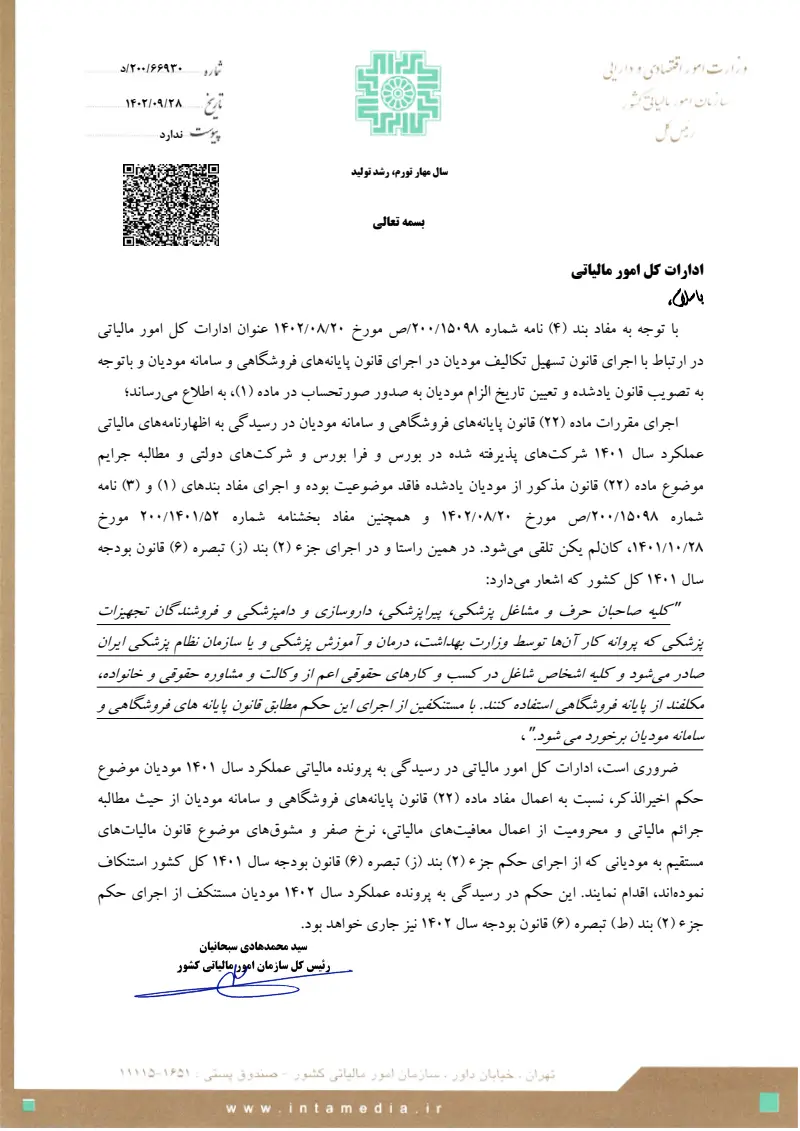 وزارت امور اقتصادی و دارایی
سازمان امور مالیاتی کشور
رئیس کل
شماره ۲۰۰/۶۶۹۳۰/د
تاریخ ۱۴۰۲/۰۹/۲۸
پیوست ندارد
سال مهار تورم، رشد تولید
بسمه تعالی
ادارات کل امور مالیاتی
باسلام،
با توجه به مفاد بند (۴) نامه شماره ۲۰۰/۱۵۰۹۸/ص مورخ ۱۴۰۲/۰۸/۲۰ عنوان ادارات کل امور مالیاتی
در ارتباط با اجرای قانون تسهیل تکالیف مودیان در اجرای قانون پایانه‌های فروشگاهی و سامانه مودیان و باتوجه
به تصویب قانون یادشده و تعیین تاریخ الزام مودیان به صدور صورتحساب در ماده (۱)، به اطلاع می‌رساند؛
اجرای مقررات ماده (۲۲) قانون پایانه‌های فروشگاهی و سامانه مودیان در رسیدگی به اظهارنامه‌های مالیاتی
عملکرد سال ۱۴۰۱ شرکت‌های پذیرفته شده در بورس و فرا بورس و شرکت‌های دولتی و مطالبه جرایم
موضوع ماده (۲۲) قانون مذکور از مودیان یادشده فاقد موضوعیت بوده و اجرای مفاد بندهای (۱) و (۳) نامه
شماره ۲۰۰/۱۵۰۹۸/ص مورخ ۱۴۰۲/۰۸/۲۰ و همچنین مفاد بخشنامه شماره ۲۰۰/۱۴۰۱/۵۲ مورخ
۱۴۰۱/۱۰/۲۸، کان‌لم یکن تلقی می‌شود. در همین راستا و در اجرای جزء (۲) بند (ز) تبصره (۶) قانون بودجه
سال ۱۴۰۱ کل کشور که اشعار می‌دارد:
"کلیه صاحبان حرف و مشاغل پزشکی، پیراپزشکی، داروسازی و دامپزشکی و فروشندگان تجهیزات
پزشکی که پروانه کار آن‌ها توسط وزارت بهداشت، درمان و آموزش پزشکی و یا سازمان نظام پزشکی ایران
صادر می‌شود و کلیه اشخاص شاغل در کسب و کارهای حقوقی اعم از وکالت و مشاوره حقوقی و خانواده،
مکلفند از پایانه فروشگاهی استفاده کنند. با مستنکفین از اجرای این حکم مطابق قانون پایانه های فروشگاهی و
سامانه مودیان برخورد می شود."،
ضروری است، ادارات کل امور مالیاتی در رسیدگی به پرونده مالیاتی عملکرد سال ۱۴۰۱ مودیان موضوع
حکم اخیرالذکر، نسبت به اعمال مفاد ماده (۲۲) قانون پایانه‌های فروشگاهی و سامانه مودیان از حیث مطالبه
جرائم مالیاتی و محرومیت از اعمال معافیت‌های مالیاتی، نرخ صفر و مشوق‌های موضوع قانون مالیات‌های
مستقیم به مودیانی که از اجرای حکم جزء (۲) بند (ز) تبصره (۶) قانون بودجه سال ۱۴۰۱ کل کشور استنکاف
نموده‌اند، اقدام نمایند. این حکم در رسیدگی به پرونده عملکرد سال ۱۴۰۲ مودیان مستنکف از اجرای حکم
جزء (۲) بند (ط) تبصره (۶) قانون بودجه سال ۱۴۰۲ نیز جاری خواهد بود.
سید محمدهادی سبحانیان
رئیس کل سازمان امور مالیاتی کشور
تهران ، خیابان داور ، سازمان امور مالیاتی کشور - صندوق پستی : ۱۶۵۱-۱۱۱۱۵
www.intamedia.ir